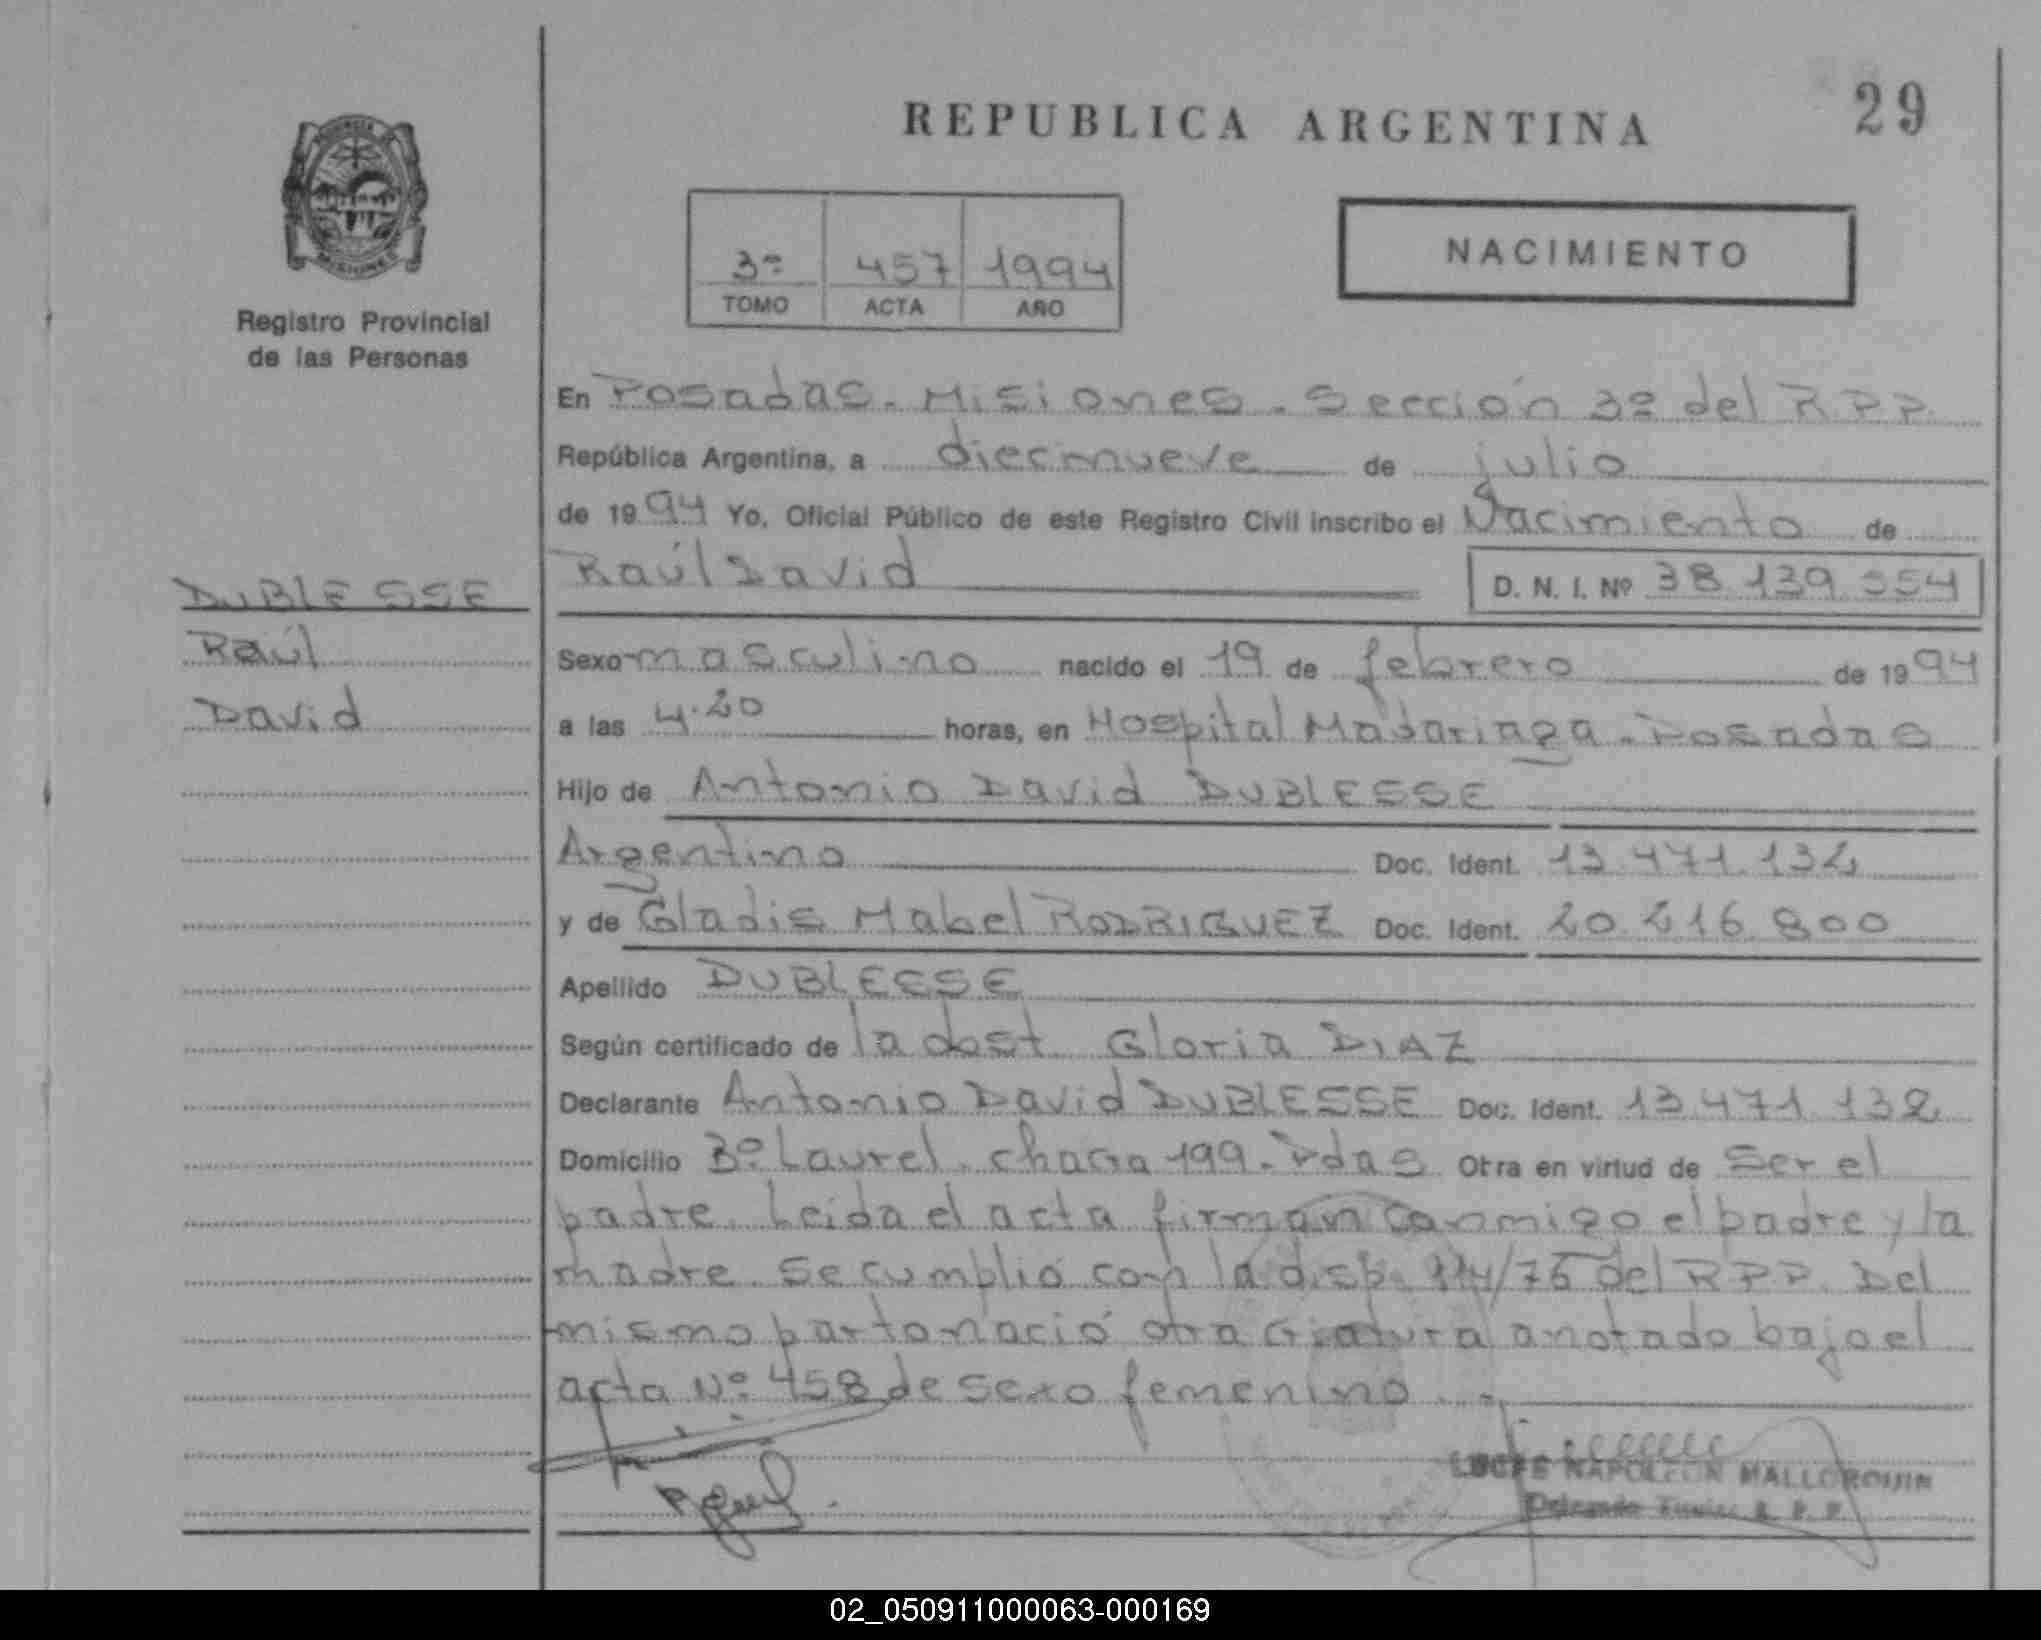 REPUBLICA ARGENTINA
29
3º 457 1994
TOMO ACTA AÑO
NACIMIENTO
MISIONES
Registro Provincial
de las Personas
En Posadas - Misiones - Sección 3º del R.P.P.
República Argentina, a diecinueve de julio
de 1994 Yo, Oficial Público de este Registro Civil inscribo el Nacimiento de
Raúl David
D. N. I. Nº 38.139.554
DUBLESSE
Raúl
David
Sexo masculino nacido el 19 de febrero de 1994
a las 4.20 horas, en Hospital Madariaga - Posadas
Hijo de Antonio David DUBLESSE
Argentino Doc. Ident. 13.471.132
y de Gladis Mabel RODRIGUEZ Doc. Ident. 20.216.800
Apellido DUBLESSE
Según certificado de la obst. Gloria DIAZ
Declarante Antonio David DUBLESSE Doc. Ident. 13.471.132
Domicilio Bº Laurel - chacra 199 - Pdas Otra en virtud de ser el
padre. Leida el acta firman conmigo el padre y la
madre. Se cumplió con la disp. 114/76 del R.P.P. Del
mismo parto nació otra criatura anotado bajo el
acta Nº 458 de sexo femenino. -
NAPOLEON MALLORQUIN
R. P. P.
02_050911000063-000169